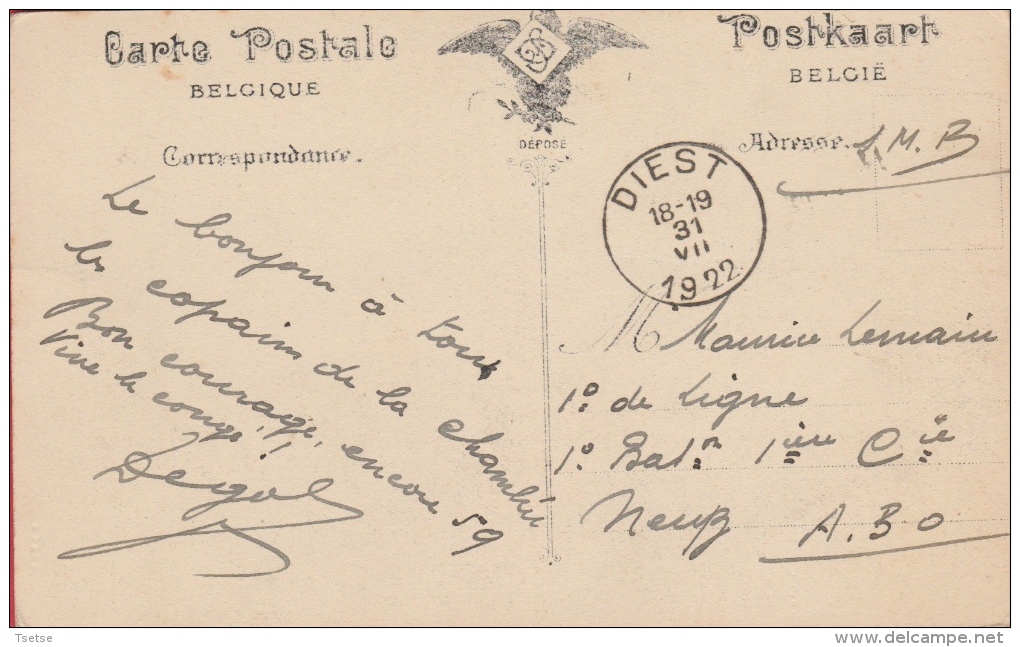 Carte Postale
BELGIQUE
Postkaart
BELGIË
Correspondance.
DÉPOSÉ
Adresse.
S. M. B
DIEST
18-19
31
VII
1922
Le bonjour à tous
les copains de la chambre
Bon courage, encore 59
Vive le congé!!
M Maurice Lemain
1º de Ligne
1º Batᵒⁿ 1ière Cie
Neuß A.B.O
Tsetse
www.delcampe.net